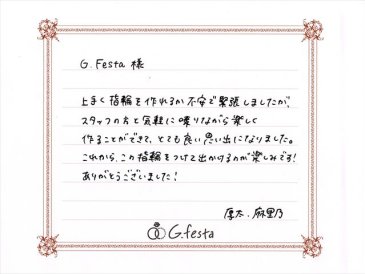 G.Festa 様
上手く指輪を作れるか不安で緊張しましたが、
スタッフの方と気軽に喋りながら楽しく
作ることができて、とても良い思い出になりました。
これから、この指輪をつけて出かけるのが楽しみです!
ありがとうございました!
厚太、麻里乃
G.festa